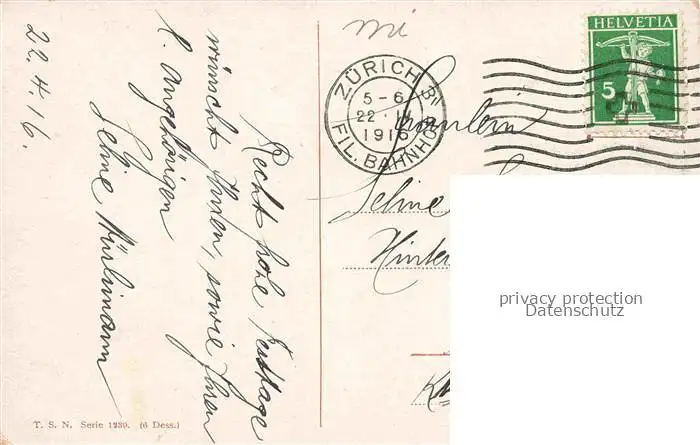 22. 4. 16.
Recht frohe Festtage
wünscht Ihnen, sowie Ihren
l. Angehörigen
Seline Hürlimann
T. S. N. Serie 1239. (6 Dess.)
mi
ZÜRICH
5-6
22 IV
1916
FIL. BAHNHOF
HELVETIA
5
Fräulein
Seline
Hinter
privacy protection
Datenschutz